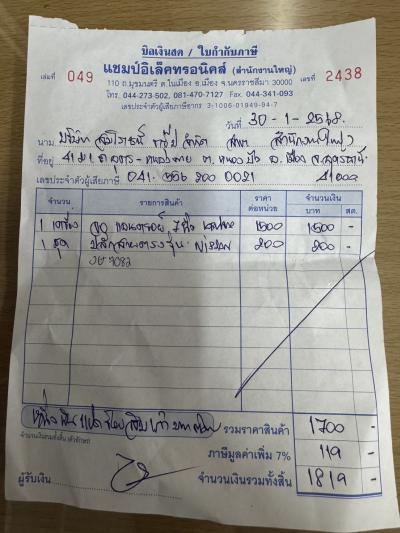 บิลเงินสด / ใบกำกับภาษี
เล่มที่ 049 แชมป์อิเล็คทรอนิคส์ (สำนักงานใหญ่) เลขที่ 2438
110 ถ.มุขมนตรี ต.ในเมือง อ.เมือง จ.นครราชสีมา 30000
โทร. 044-273-502, 081-470-7127 Fax. 044-341-093
เลขประจำตัวผู้เสียภาษีอากร 3-1006-01949-94-7
วันที่ 30-1-2568
นาม บริษัท จำกัด สาขา สำนักงานใหญ่
ที่อยู่ อ. เมือง จ.อุดรธานี
เลขประจำตัวผู้เสียภาษี 041 556 200 0021 41000
จำนวน รายการสินค้า ราคาต่อหน่วย จำนวนเงิน
บาท สต.
1 เครื่อง จอ 7 นิ้ว 1500 1500 -
1 ชุด ปลั๊กสายตรงรุ่น Nissan 200 200 -
7082
รวมราคาสินค้า 1700 -
จำนวนเงินรวมทั้งสิ้น (ตัวอักษร)
ภาษีมูลค่าเพิ่ม 7% 119 -
ผู้รับเงิน จำนวนเงินรวมทั้งสิ้น 1819 -